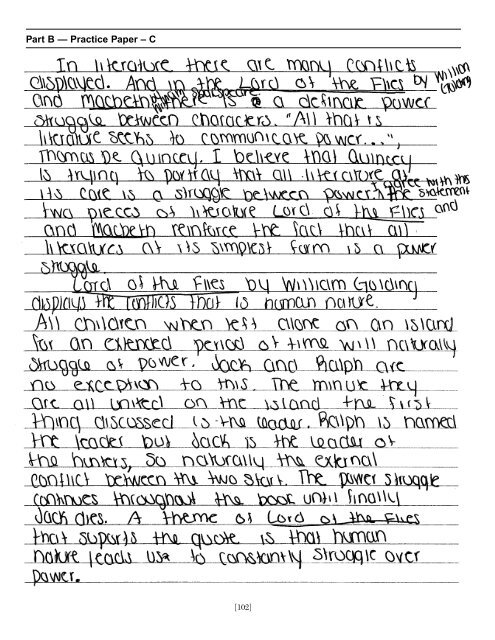 Part B — Practice Paper – C
In literature there are many conflicts
displayed. And in the Lord of the Flies by William Golding
and Macbeth by William Shakespeare there is a definate power
struggle between characters. "All that is
literature seeks to communicate power...",
Thomas De Quincey. I believe that Quincey
is trying to portray that all literature at
its core is a struggle between power. I agree with this statement and the
two pieces of literature Lord of the Flies and
and Macbeth reinforce the fact that all
literatures at its simplest form is a power
struggle.
Lord of the Flies by William Golding
displays the conflicts that is human nature.
All children when left alone on an island
for an extended period of time will naturally
struggle of power. Jack and Ralph are
no exception to this. The minute they
are all united on the island the first
thing discussed is the leader. Ralph is named
the leader but Jack is the leader of
the hunters, so naturally the external
conflict between the two start. The power struggle
continues throughout the book until finally
Jack dies. A theme of Lord of the Flies
that suports the quote is that human
nature leads us to constantly struggle over
power.
[102]